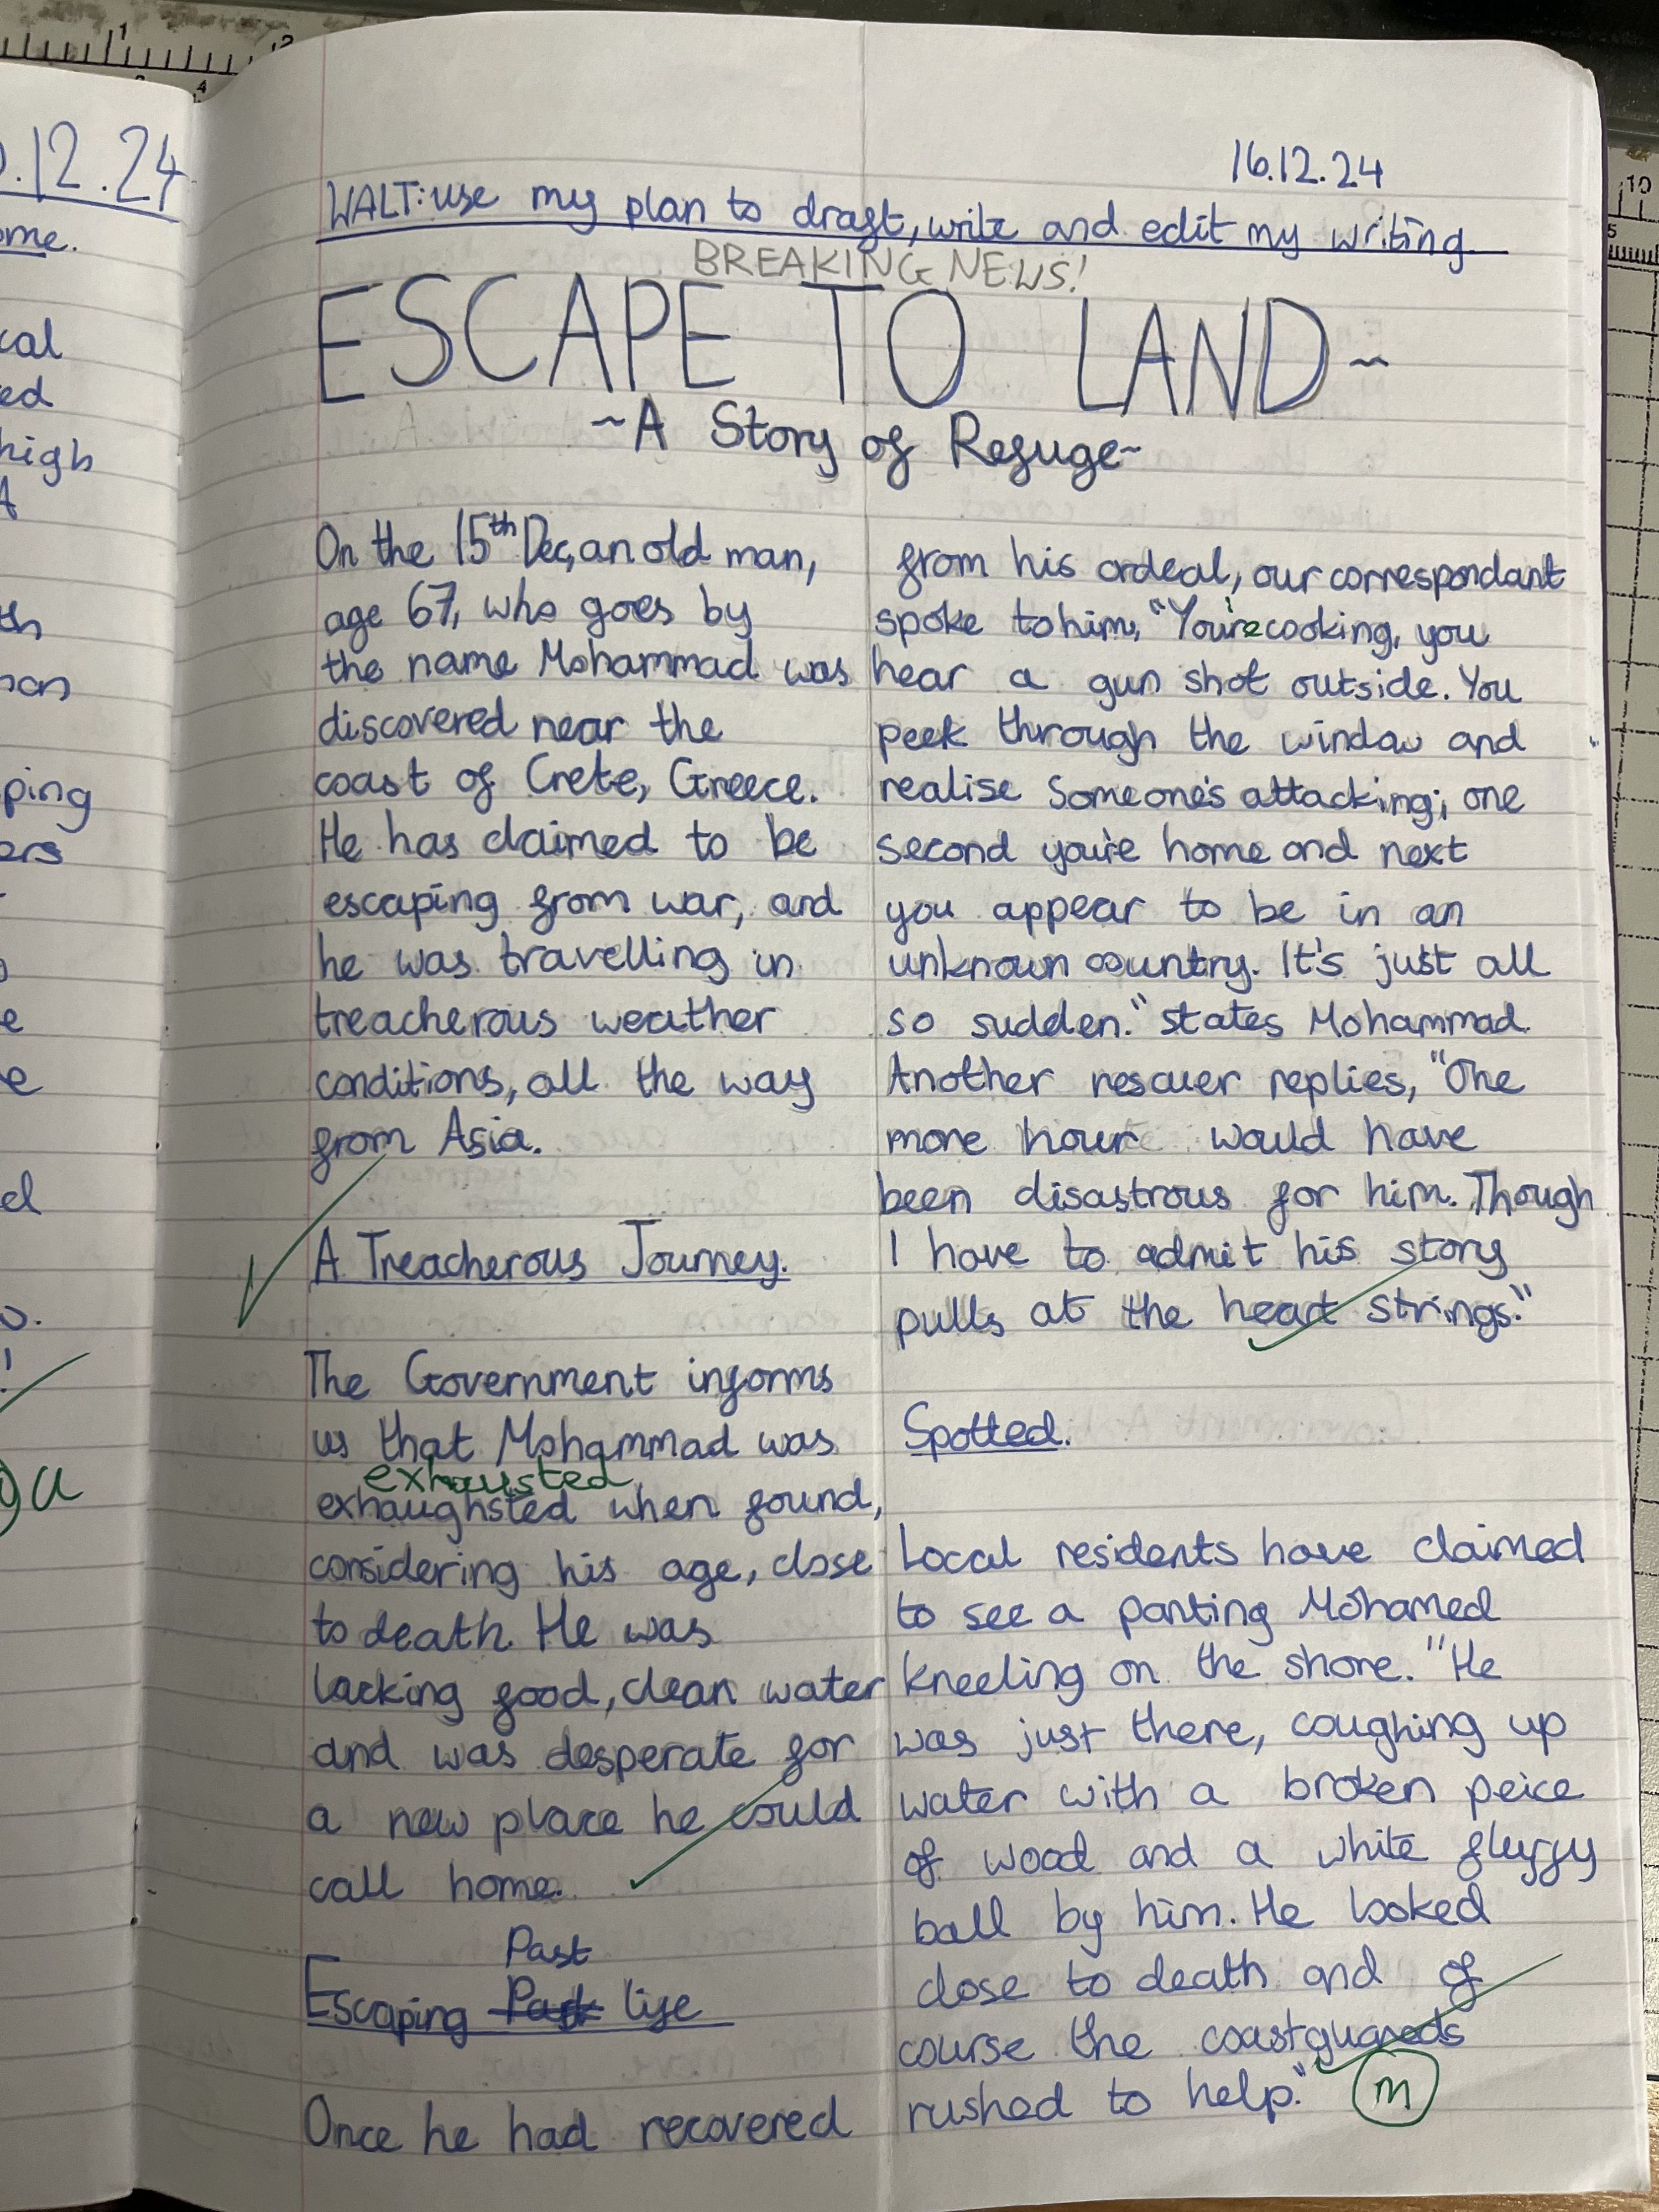 16.12.24
WALT: use my plan to draft, write and edit my writing
BREAKING NEWS!
ESCAPE TO LAND~
~A Story of Refuge~
On the 15th Dec, an old man,
age 67, who goes by
the name Mohammad was
discovered near the
coast of Crete, Greece.
He has claimed to be
escaping from war, and
he was travelling in
treacherous weather
conditions, all the way
from Asia.
A Treacherous Journey.
The Government informs
us that Mohammad was
exhausted
exhaughsted when found,
considering his age, close
to death. He was
lacking food, clean water
and was desperate for
a new place he could
call home.
Past
Escaping life
Once he had recovered
from his ordeal, our correspondant
spoke to him, "You're cooking, you
hear a gun shot outside. You
peek through the window and
realise Someone's attacking; one
second you're home and next
you appear to be in an
unknown country. It's just all
so sudden." states Mohammad.
Another rescuer replies, "One
more hour would have
been disastrous for him. Though
I have to admit his story
pulls at the heart strings."
Spotted.
Local residents have claimed
to see a panting Mohamed
kneeling on the shore. "He
was just there, coughing up
water with a broken peice
of wood and a white fluffy
ball by him. He looked
close to death and of
course the coastguards
rushed to help."
m
0.12.24
ome.
cal
ed
high
A
th
ping
ers
e
e
el